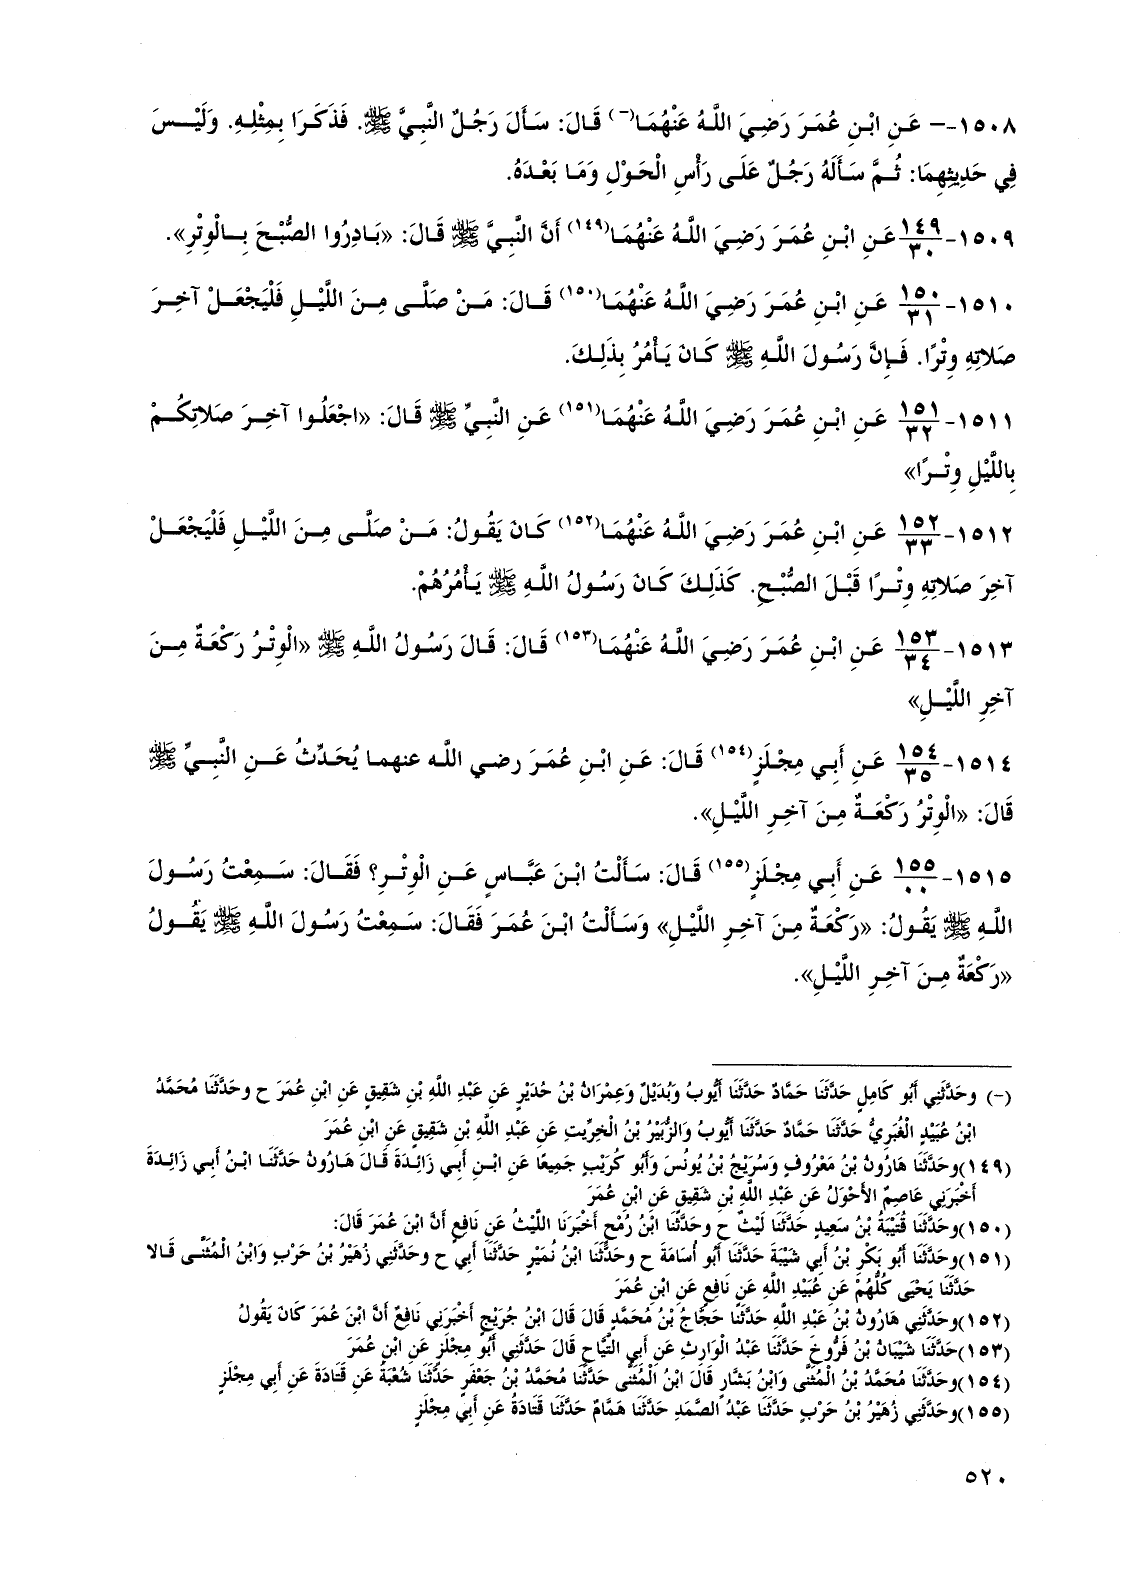 ١٥٠٨-– عَنِ ابْنِ عُمَرَ رَضِيَ اللَّهُ عَنْهُمَا(–) قَالَ: سَأَلَ رَجُلٌ النَّبِيَّ ﷺ. فَذَكَرَا بِمِثْلِهِ. وَلَيْسَ
فِي حَدِيثِهِمَا: ثُمَّ سَأَلَهُ رَجُلٌ عَلَى رَأْسِ الْحَوْلِ وَمَا بَعْدَهُ.
١٥٠٩- ١٤٩/٣٠ عَنِ ابْنِ عُمَرَ رَضِيَ اللَّهُ عَنْهُمَا(١٤٩) أَنَّ النَّبِيَّ ﷺ قَالَ: «بَادِرُوا الصُّبْحَ بِالْوِتْرِ».
١٥١٠- ١٥٠/٣١ عَنِ ابْنِ عُمَرَ رَضِيَ اللَّهُ عَنْهُمَا(١٥٠) قَالَ: مَنْ صَلَّى مِنَ اللَّيْلِ فَلْيَجْعَلْ آخِرَ
صَلاتِهِ وِتْرًا. فَإِنَّ رَسُولَ اللَّهِ ﷺ كَانَ يَأْمُرُ بِذَلِكَ.
١٥١١- ١٥١/٣٢ عَنِ ابْنِ عُمَرَ رَضِيَ اللَّهُ عَنْهُمَا(١٥١) عَنِ النَّبِيِّ ﷺ قَالَ: «اجْعَلُوا آخِرَ صَلاتِكُمْ
بِاللَّيْلِ وِتْرًا»
١٥١٢- ١٥٢/٣٣ عَنِ ابْنِ عُمَرَ رَضِيَ اللَّهُ عَنْهُمَا(١٥٢) كَانَ يَقُولُ: مَنْ صَلَّى مِنَ اللَّيْلِ فَلْيَجْعَلْ
آخِرَ صَلاتِهِ وِتْرًا قَبْلَ الصُّبْحِ. كَذَلِكَ كَانَ رَسُولُ اللَّهِ ﷺ يَأْمُرُهُمْ.
١٥١٣- ١٥٣/٣٤ عَنِ ابْنِ عُمَرَ رَضِيَ اللَّهُ عَنْهُمَا(١٥٣) قَالَ: قَالَ رَسُولُ اللَّهِ ﷺ «الْوِتْرُ رَكْعَةٌ مِنَ
آخِرِ اللَّيْلِ»
١٥١٤- ١٥٤/٣٥ عَنِ أَبِي مِجْلَزٍ(١٥٤) قَالَ: عَنِ ابْنِ عُمَرَ رضي اللَّه عنهما يُحَدِّثُ عَنِ النَّبِيِّ ﷺ
قَالَ: «الْوِتْرُ رَكْعَةٌ مِنَ آخِرِ اللَّيْلِ».
١٥١٥- ١٥٥/٠٠ عَنِ أَبِي مِجْلَزٍ(١٥٥) قَالَ: سَأَلْتُ ابْنَ عَبَّاسٍ عَنِ الْوِتْرِ؟ فَقَالَ: سَمِعْتُ رَسُولَ
اللَّهِ ﷺ يَقُولُ: «رَكْعَةٌ مِنَ آخِرِ اللَّيْلِ» وَسَأَلْتُ ابْنَ عُمَرَ فَقَالَ: سَمِعْتُ رَسُولَ اللَّهِ ﷺ يَقُولُ
«رَكْعَةٌ مِنَ آخِرِ اللَّيْلِ».
(–) وحَدَّثَنِي أَبُو كَامِلٍ حَدَّثَنَا حَمَّادٌ حَدَّثَنَا أَيُّوبُ وَبُدَيْلٌ وَعِمْرَانُ بْنُ حُدَيْرٍ عَنِ عَبْدِ اللَّهِ بْنِ شَقِيقٍ عَنِ ابْنِ عُمَرَ ح وحَدَّثَنَا مُحَمَّدُ
ابْنُ عُبَيْدٍ الْغُبَرِيُّ حَدَّثَنَا حَمَّادٌ حَدَّثَنَا أَيُّوبُ وَالزُّبَيْرُ بْنُ الْخِرِّيتِ عَنِ عَبْدِ اللَّهِ بْنِ شَقِيقٍ عَنِ ابْنِ عُمَرَ
(١٤٩)وحَدَّثَنَا هَارُونُ بْنُ مَعْرُوفٍ وَسُرَيْجُ بْنُ يُونُسَ وَأَبُو كُرَيْبٍ جَمِيعًا عَنِ ابْنِ أَبِي زَائِدَةَ قَالَ هَارُونُ حَدَّثَنَا ابْنُ أَبِي زَائِدَةَ
أَخْبَرَنِي عَاصِمٌ الأَحْوَلُ عَنِ عَبْدِ اللَّهِ بْنِ شَقِيقٍ عَنِ ابْنِ عُمَرَ
(١٥٠)وحَدَّثَنَا قُتَيْبَةُ بْنُ سَعِيدٍ حَدَّثَنَا لَيْثٌ ح وحَدَّثَنَا ابْنُ رُمْحٍ أَخْبَرَنَا اللَّيْثُ عَنِ نَافِعٍ أَنَّ ابْنَ عُمَرَ قَالَ:
(١٥١)وحَدَّثَنَا أَبُو بَكْرِ بْنُ أَبِي شَيْبَةَ حَدَّثَنَا أَبُو أُسَامَةَ ح وحَدَّثَنَا ابْنُ نُمَيْرٍ حَدَّثَنَا أَبِي ح وحَدَّثَنِي زُهَيْرُ بْنُ حَرْبٍ وَابْنُ الْمُثَنَّى قَالا
حَدَّثَنَا يَحْيَى كُلُّهُمْ عَنِ عُبَيْدِ اللَّهِ عَنِ نَافِعٍ عَنِ ابْنِ عُمَرَ
(١٥٢)وحَدَّثَنِي هَارُونُ بْنُ عَبْدِ اللَّهِ حَدَّثَنَا حَجَّاجُ بْنُ مُحَمَّدٍ قَالَ قَالَ ابْنُ جُرَيْجٍ أَخْبَرَنِي نَافِعٌ أَنَّ ابْنَ عُمَرَ كَانَ يَقُولُ
(١٥٣)حَدَّثَنَا شَيْبَانُ بْنُ فَرُّوخَ حَدَّثَنَا عَبْدُ الْوَارِثِ عَنِ أَبِي التَّيَّاحِ قَالَ حَدَّثَنِي أَبُو مِجْلَزٍ عَنِ ابْنِ عُمَرَ
(١٥٤)وحَدَّثَنَا مُحَمَّدُ بْنُ الْمُثَنَّى وَابْنُ بَشَّارٍ قَالَ ابْنُ الْمُثَنَّى حَدَّثَنَا مُحَمَّدُ بْنُ جَعْفَرٍ حَدَّثَنَا شُعْبَةُ عَنِ قَتَادَةَ عَنِ أَبِي مِجْلَزٍ
(١٥٥)وحَدَّثَنِي زُهَيْرُ بْنُ حَرْبٍ حَدَّثَنَا عَبْدُ الصَّمَدِ حَدَّثَنَا هَمَّامٌ حَدَّثَنَا قَتَادَةُ عَنِ أَبِي مِجْلَزٍ
٥٢٠